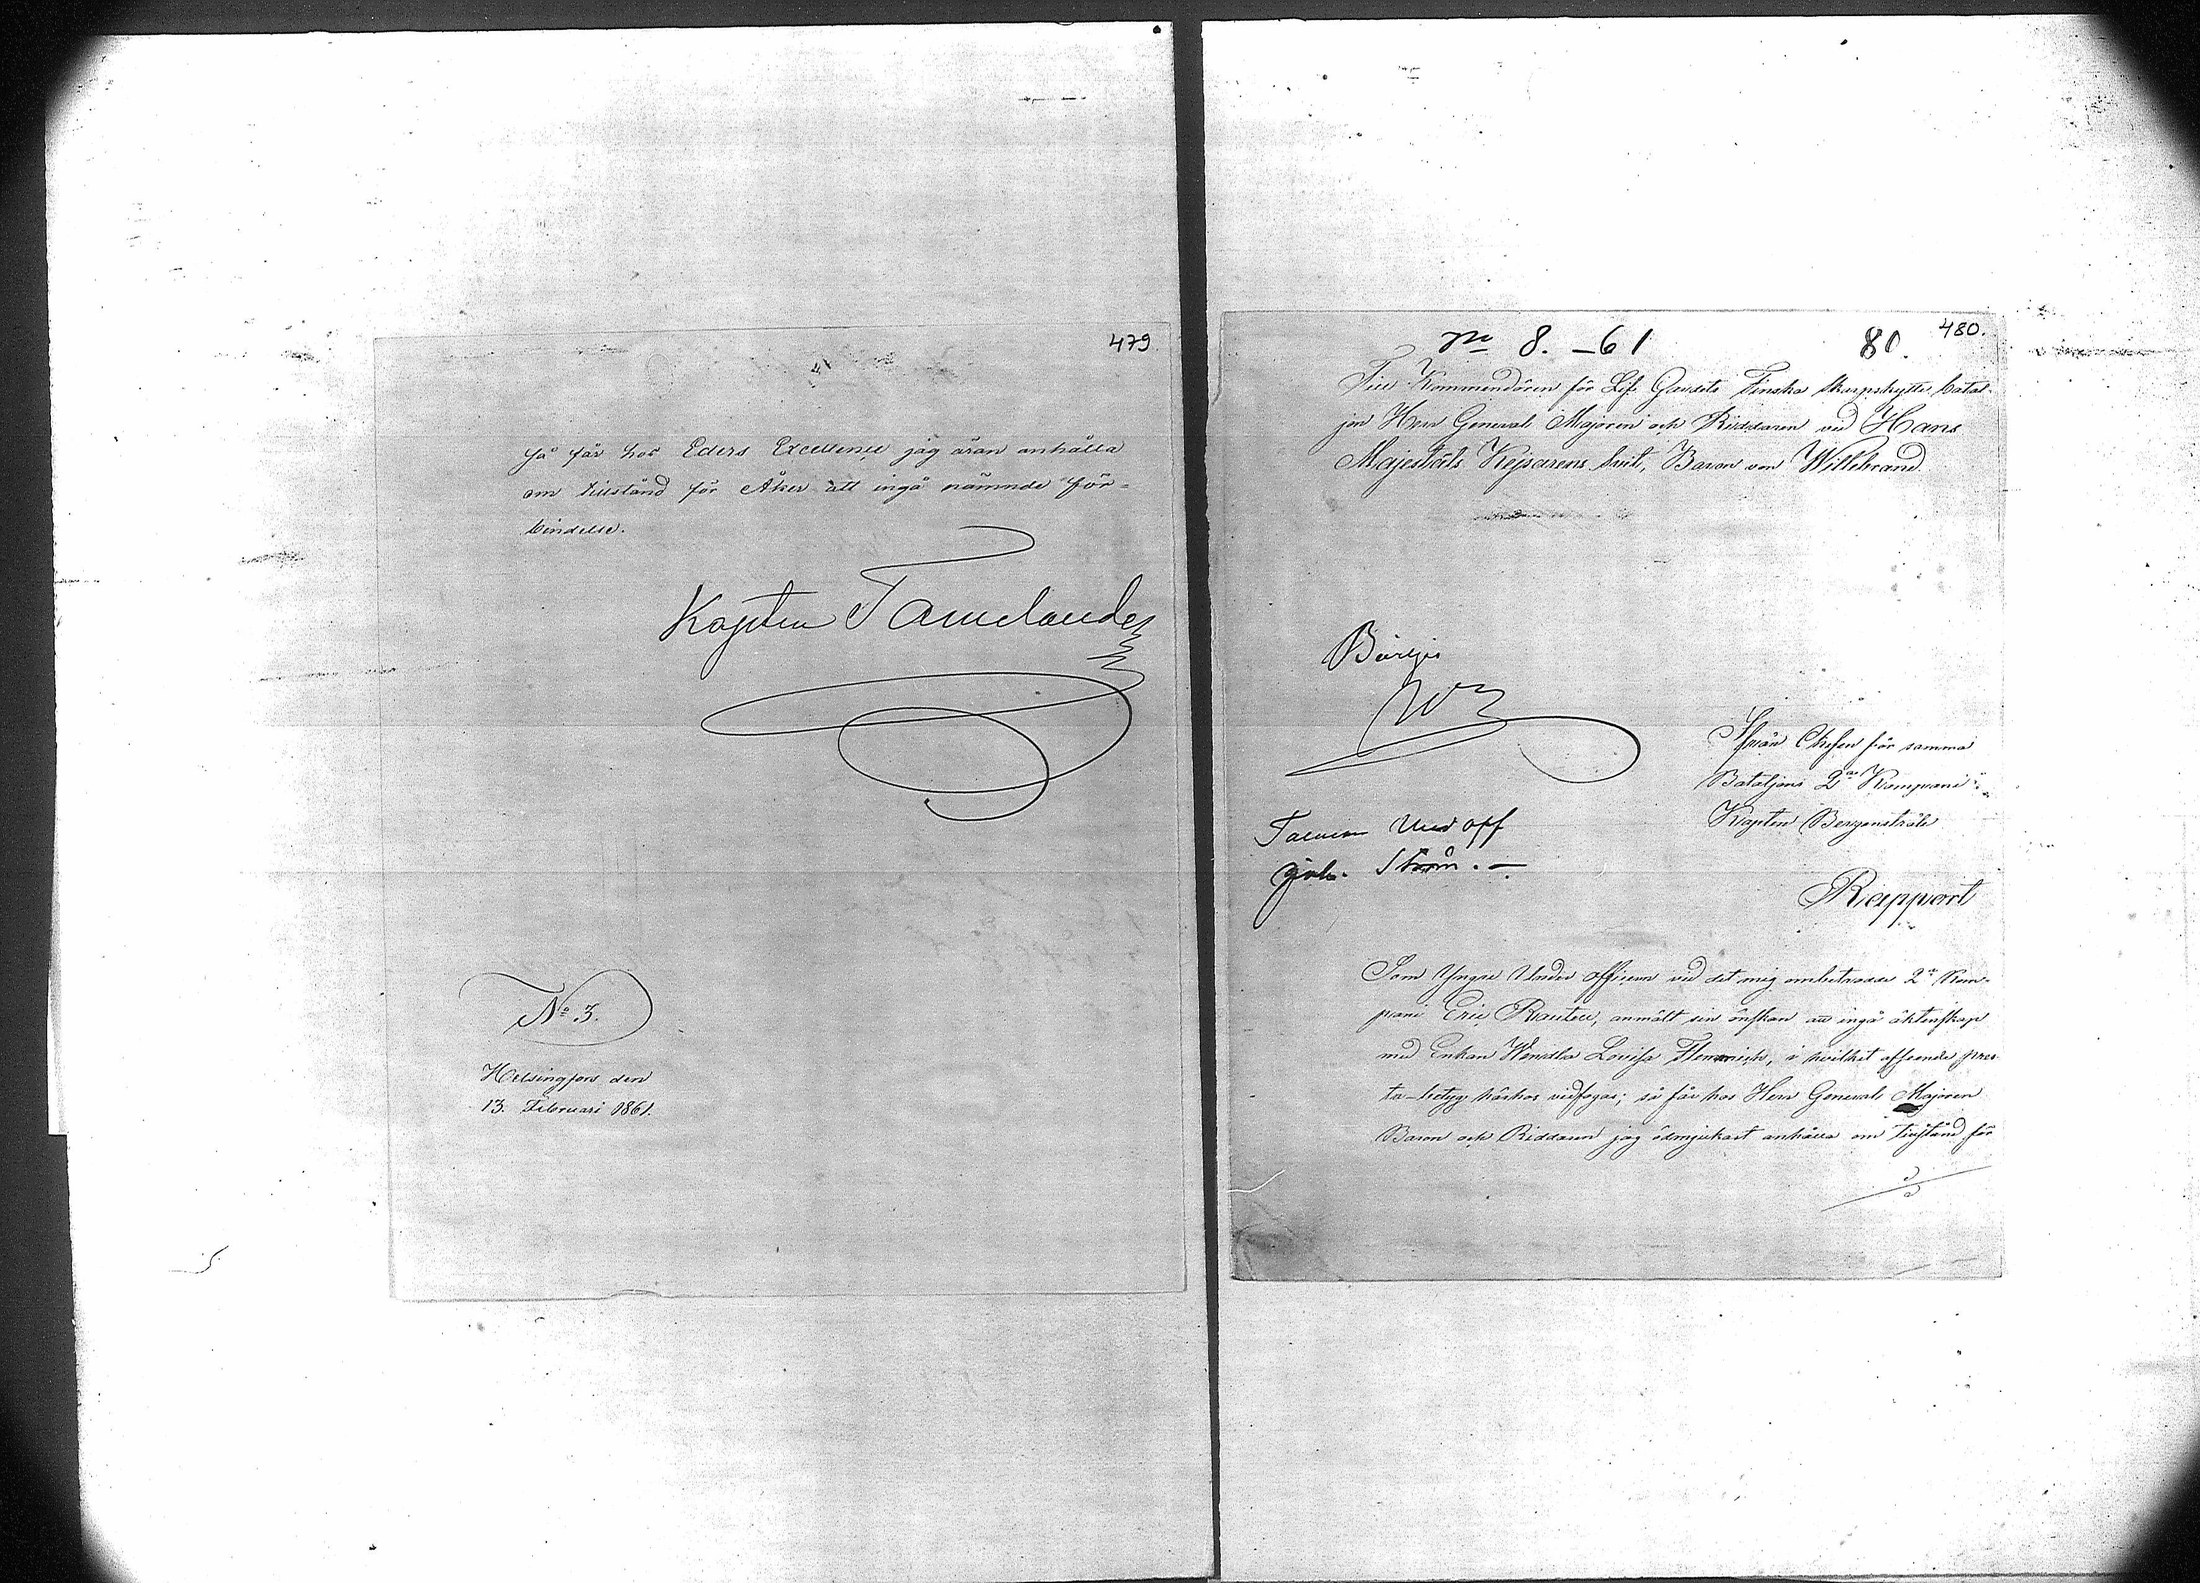 479.
så får hos Eders Excellence jag äran anhålla
om tillstånd för Åker att ingå nämnde för=
bindelse.
Kapten Tamelander
No 3.
Helsingfors den
13. Februari 1861.
480.
No 8. –61
80.
Till Kommendören för Lif Gardets Finska Skarpskytte batal-
jon Herr General Majoren och Riddaren vid Hans
Majestäts Kejsarens Svit, Baron von Willebrand.
Ifrån Chefen för samma
Bataljons 2a Kompani
Kapten Bergenstråle
Und off
Rapport
Som Yngre Under officeren vid det mig anbetrodda 2a Kom-
pani Eric Rautell, anmält sin önskan att ingå äktenskap
med Enkan Wendla Lovisa, i hvilket afseende pres-
ta-betyg härhos vidfogas; så får hos Herr General Majoren
Baron och Riddaren jag ödmjukast anhålla om tillstånd för